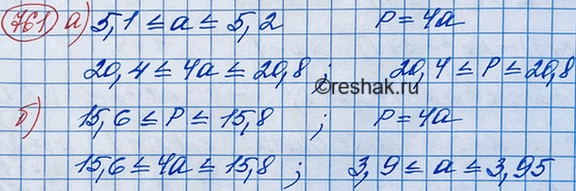 761 а) 5,1 ≤ a ≤ 5,2 P = 4a
20,4 ≤ 4a ≤ 20,8 ; 20,4 ≤ P ≤ 20,8
©reshak.ru
б) 15,6 ≤ P ≤ 15,8 ; P = 4a
15,6 ≤ 4a ≤ 15,8 ; 3,9 ≤ a ≤ 3,95